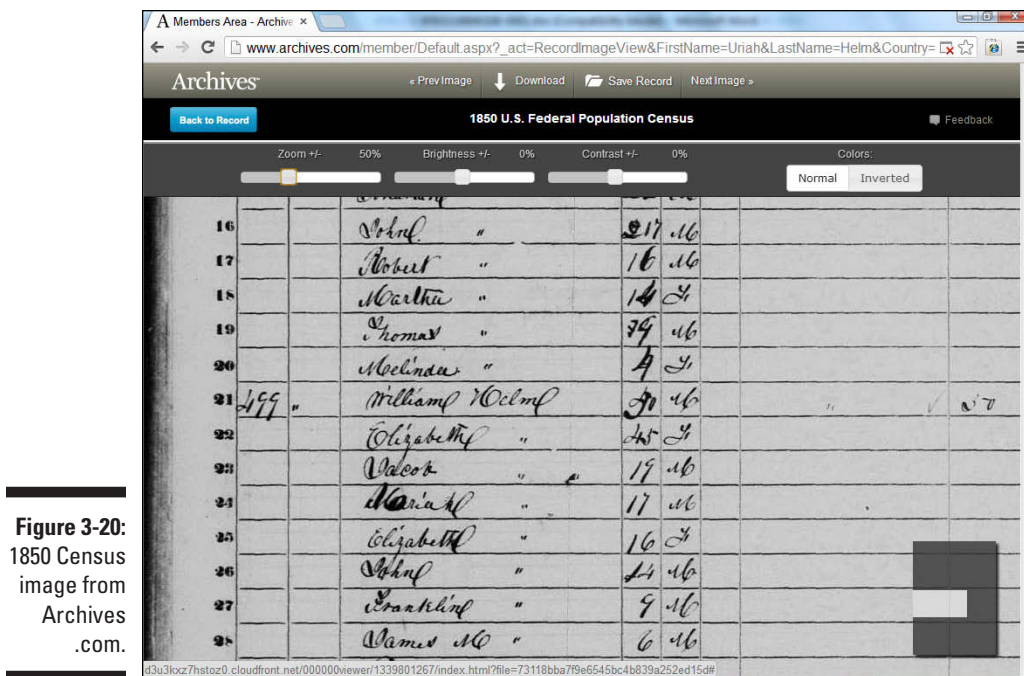 A Members Area - Archive ×
www.archives.com/member/Default.aspx?_act=RecordImageView&FirstName=Uriah&LastName=Helm&Country=
Archives
« Prev Image Download Save Record Next Image »
Back to Record 1850 U.S. Federal Population Census Feedback
Zoom +/- 50% Brightness +/- 0% Contrast +/- 0% Colors:
Normal Inverted
16 John " 17 M
17 Robert " 16 M
18 Martha " 14 F
19 Thomas " 9 M
20 Melinda " 4 F
21 499 " William Helm 50 M " 50
22 Elizabeth " 45 F
23 Jacob " 19 M
24 " 17 M
25 Elizabeth " 16 F
26 John " 14 M
27 Franklin " 9 M
28 James M " 6 M
d3u3kxz7hstoz0.cloudfront.net/000000viewer/1339801267/index.html?file=73118bba7f9e6545bc4b839a252ed15d#
Figure 3-20:
1850 Census
image from
Archives
.com.